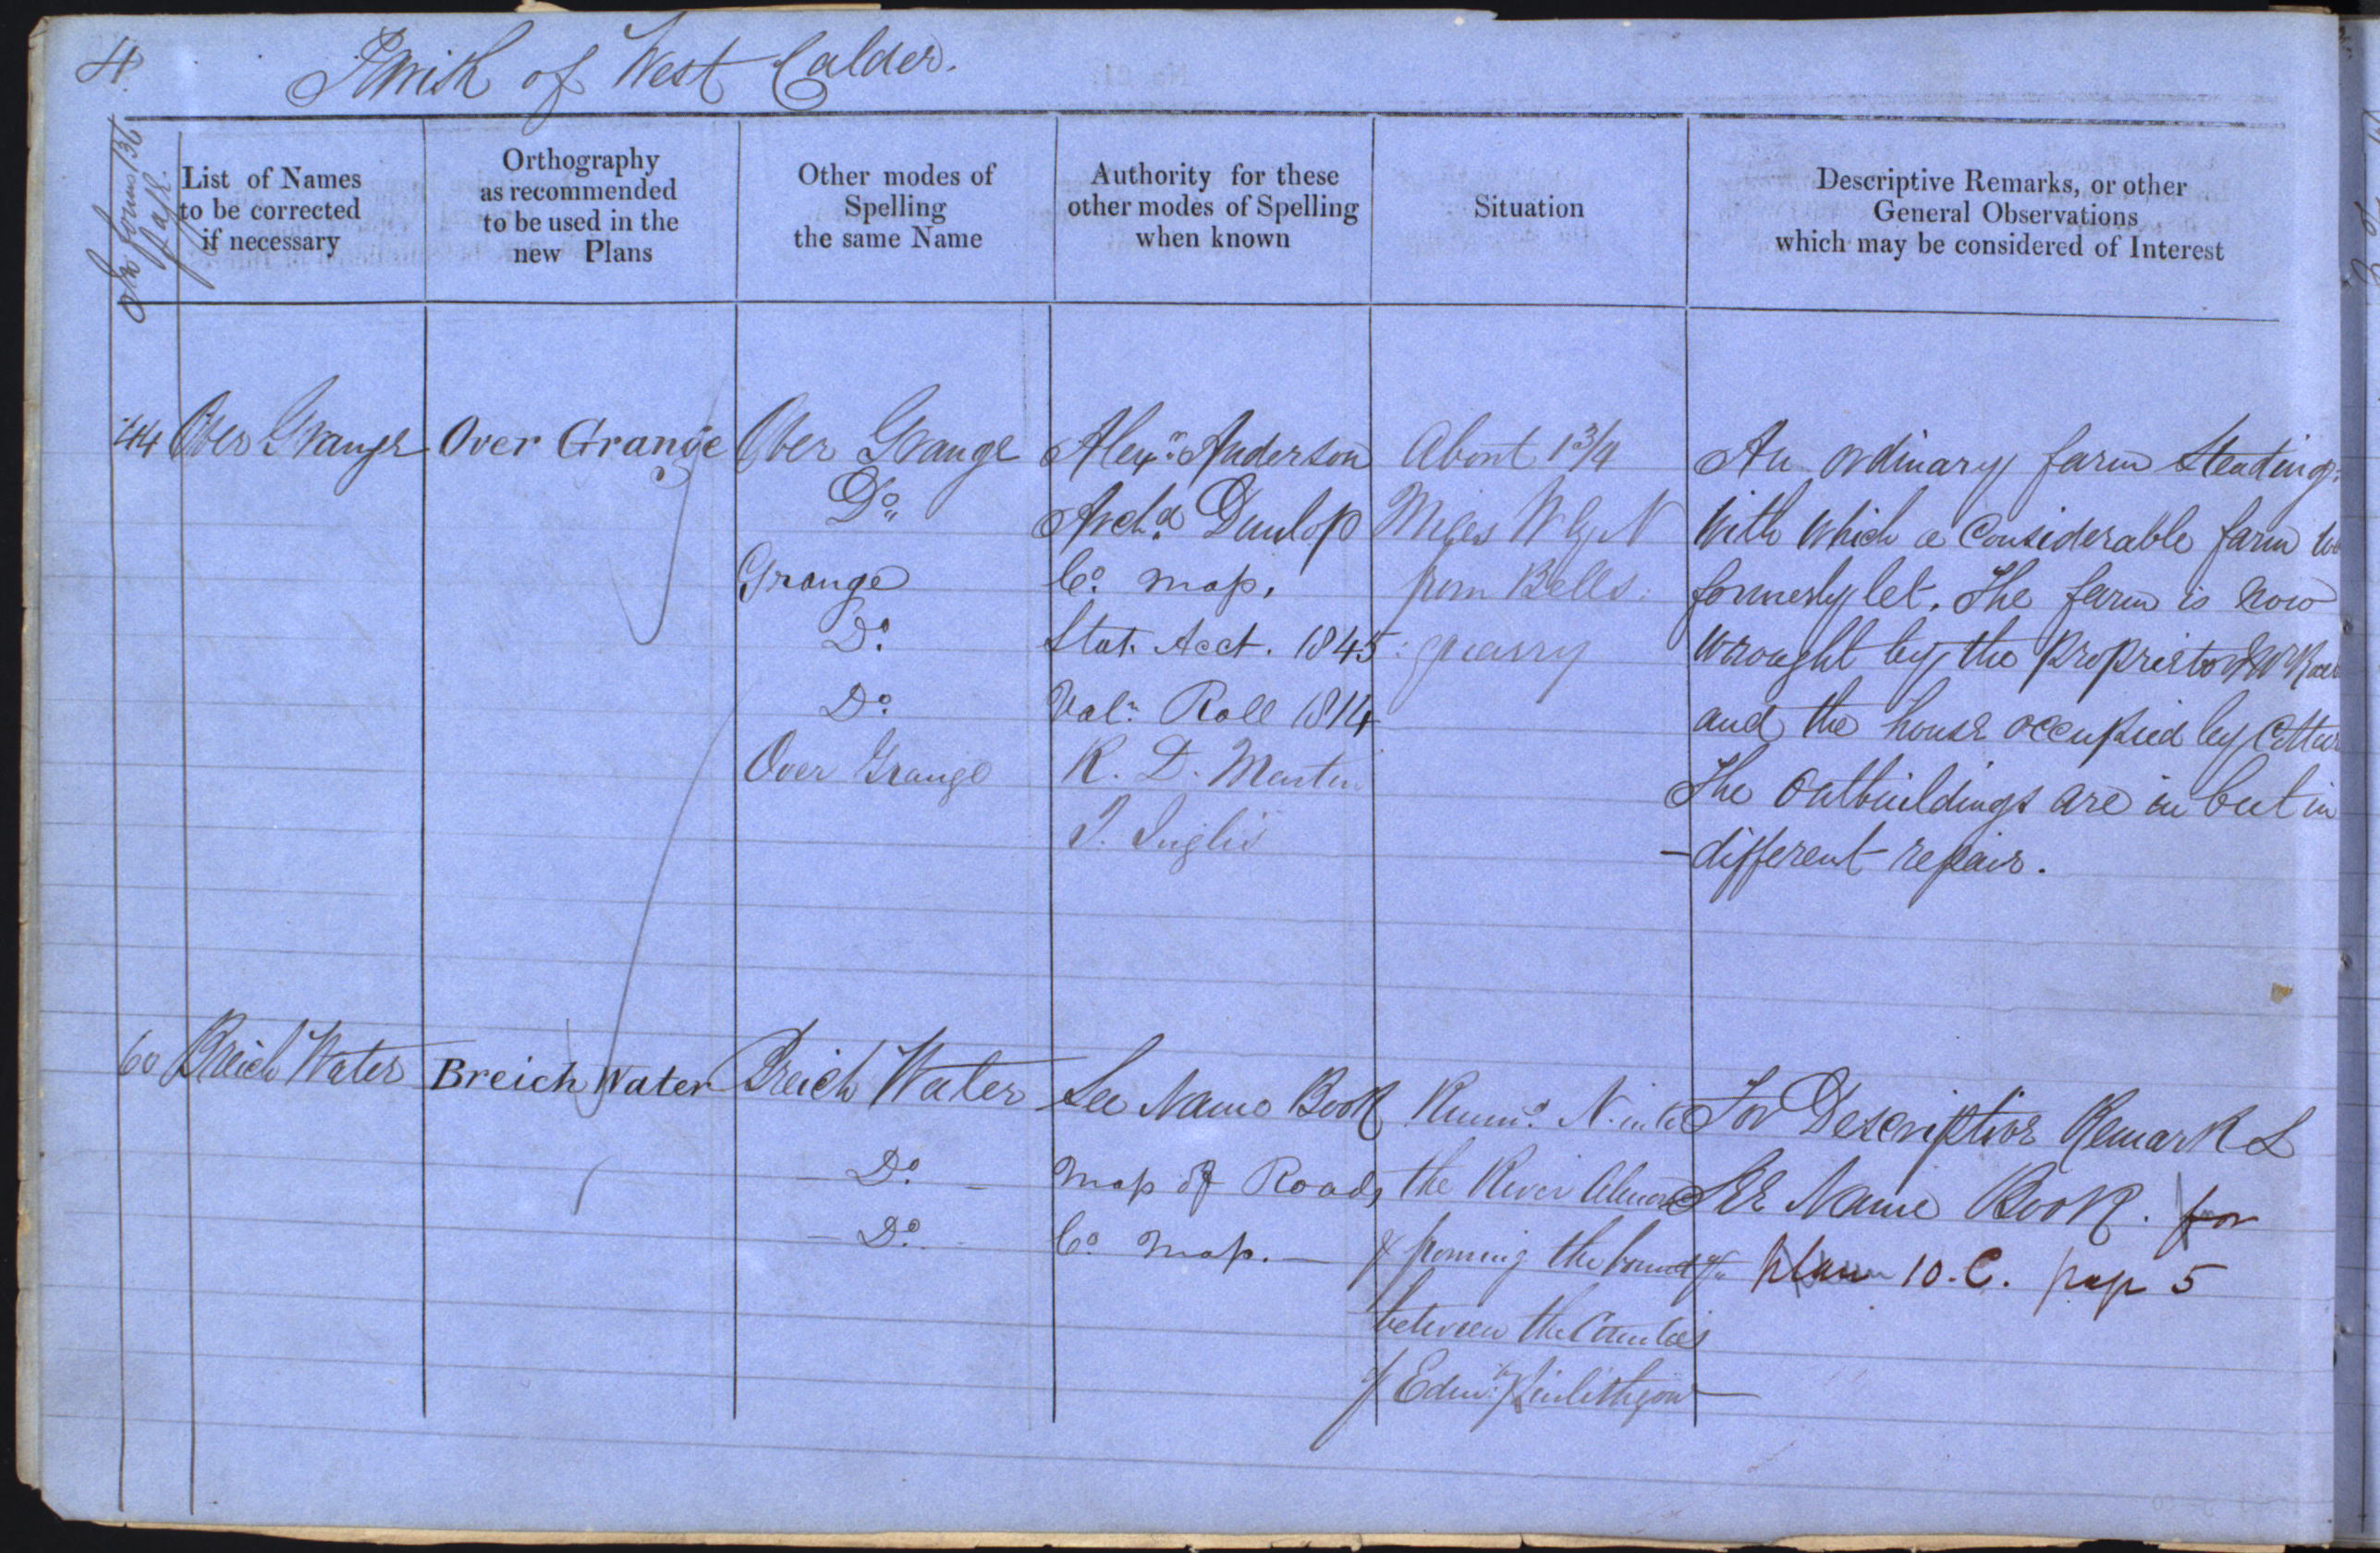 4
Parish of West Calder.
On forms 136
page.
List of Names
to be corrected
if necessary
Orthography
as recommended
to be used in the
new Plans
Other modes of
Spelling
the same Name
Authority for these
other modes of Spelling
when known
Situation
Descriptive Remarks, or other
General Observations
which may be considered of Interest
44 Over Grange
Over Grange
Over Grange
Do.
Grange
Do.
Do.
Over Grange
Alexr. Anderson
Archd. Dunlop
Co. Map.
Stat. Acct. 1845
Valn. Roll 1814
R. D. Martin
J. Inglis
About 1 3/4
Miles W by N
from Bells
quarry
An ordinary farm Steading
With which a Considerable farm
formerly let. The farm is now
wrought by the Proprietor Mr
and the house occupied by
The Outbuildings are in but in
-different repair.
60 Breich Water
Breich Water
Breich Water
- Do. -
- Do. -
See Name Book
Map of Roads
Co. Map. -
Runng. N. into
the River Almond
& forming the boundy.
between the Counties
of Edinr. & Linlithgow
For Descriptive Remarks
See Name Book. for
plan 10. C. page 5